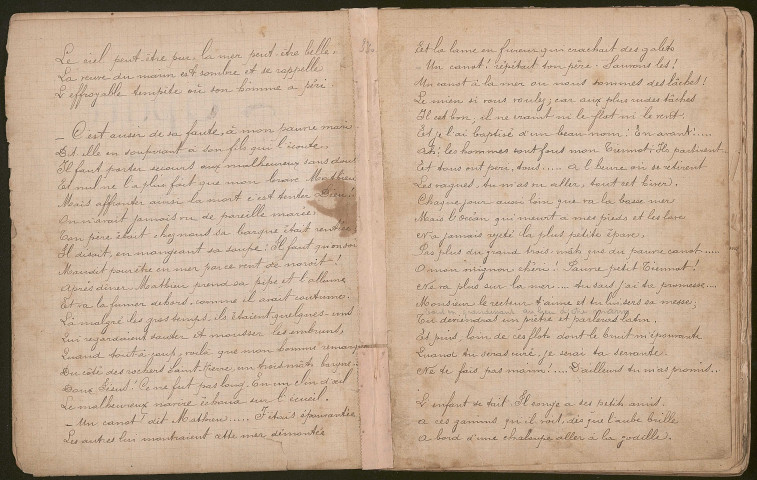 Le ciel peut être pur, la mer peut être belle.
La veuve du marin est sombre et se rappelle
L'effroyable tempête où son homme a péri
— C'est aussi de sa faute, à mon pauvre mari
Dit-elle en soupirant à son fils qui l'écoute.
Il faut porter secours aux malheureux sans doute
Et nul ne l'a plus fait que mon brave Mathieu
Mais affronter ainsi la mort c'est tenter Dieu!
On n'avait jamais vu de pareille marée.
Ton père était chez nous sa barque était rentrée
Il disait, en mangeant sa soupe: Il faut qu'on soit
Maudit pour être en mer par ce vent de noroît!
Après dîner Mathieu prend sa pipe et l'allume
Et va la fumer dehors, comme il avait coutume.
Là malgré les gros temps, ils étaient quelques-uns
Qui regardaient sauter et mousser les embruns,
Quand tout à coup, voilà que mon homme remarque
Du côté des rochers Saint-Pierre, un trois mâts barque.
Doux Jésus! Ce ne fut pas long. En un clin d'œil
Le malheureux navire échoua sur l'écueil.
— Un canot! dit Mathieu..... J'étais épouvantée
Les autres lui montraient cette mer démontée
88
Et la lame en fureur qui crachait des galets
— Un canot! répétait ton père. Sauvons les!
Un canot à la mer ou nous sommes des lâches!
Le mien si vous voulez; car aux plus rudes tâches
Il est bon, il ne craint ni le flot ni le vent.
Et je l'ai baptisé d'un beau nom: En avant!....
Ah! les hommes sont fous mon Tiennot. Ils partirent
Et tous ont péri, tous..... A l'heure où se retirent
Les vagues, tu m'as vu aller, tout cet hiver.
Chaque jour aussi loin que va la basse mer
Mais l'Océan qui meurt à mes pieds et les lave
N'a jamais rejeté la plus petite épave.
Pas plus du grand trois-mâts que du pauvre canot.....
O mon mignon chéri! Pauvre petit Tiennot!
Ne va plus sur la mer.... tu sais, j'ai ta promesse
Monsieur le recteur t'aime et tu lui sers sa messe;
Tu deviendras un prêtre et parleras latin.
Et puis, loin de ces flots dont le bruit m'épouvante
Quand tu seras curé, je serai ta servante.
Ne te fais pas marin!.... D'ailleurs tu m'as promis...
L'enfant se tait. Il songe à ses petits amis.
A ces gamins qu'il voit, dès que l'aube brille
A bord d'une chaloupe aller à la godille.